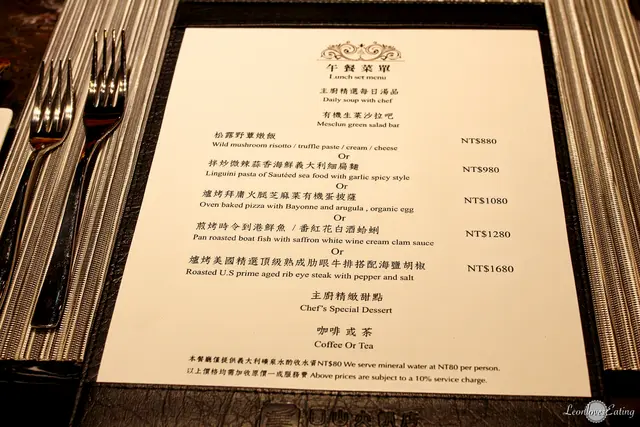 午餐菜單
Lunch set menu
主廚精選每日湯品
Daily soup with chef
有機生菜沙拉吧
Mesclun green salad bar
松露野蕈燉飯 NT$880
Wild mushroom risotto / truffle paste / cream / cheese
Or
拌炒微辣蒜香海鮮義大利細扁麵 NT$980
Linguini pasta of Sautéed sea food with garlic spicy style
Or
爐烤拜庸火腿芝麻菜有機蛋披薩 NT$1080
Oven baked pizza with Bayonne and arugula , organic egg
Or
煎烤時令到港鮮魚 / 番紅花白酒蛤蜊 NT$1280
Pan roasted boat fish with saffron white wine cream clam sauce
Or
爐烤美國精選頂級熟成肋眼牛排搭配海鹽胡椒 NT$1680
Roasted U.S prime aged rib eye steak with pepper and salt
主廚精緻甜點
Chef's Special Dessert
咖啡 或 茶
Coffee Or Tea
本餐廳僅提供義大利礦泉水酌收水資NT$80 We serve mineral water at NT80 per person.
以上價格均需加收原價一成服務費 Above prices are subject to a 10% service charge.
Leon loves Eating